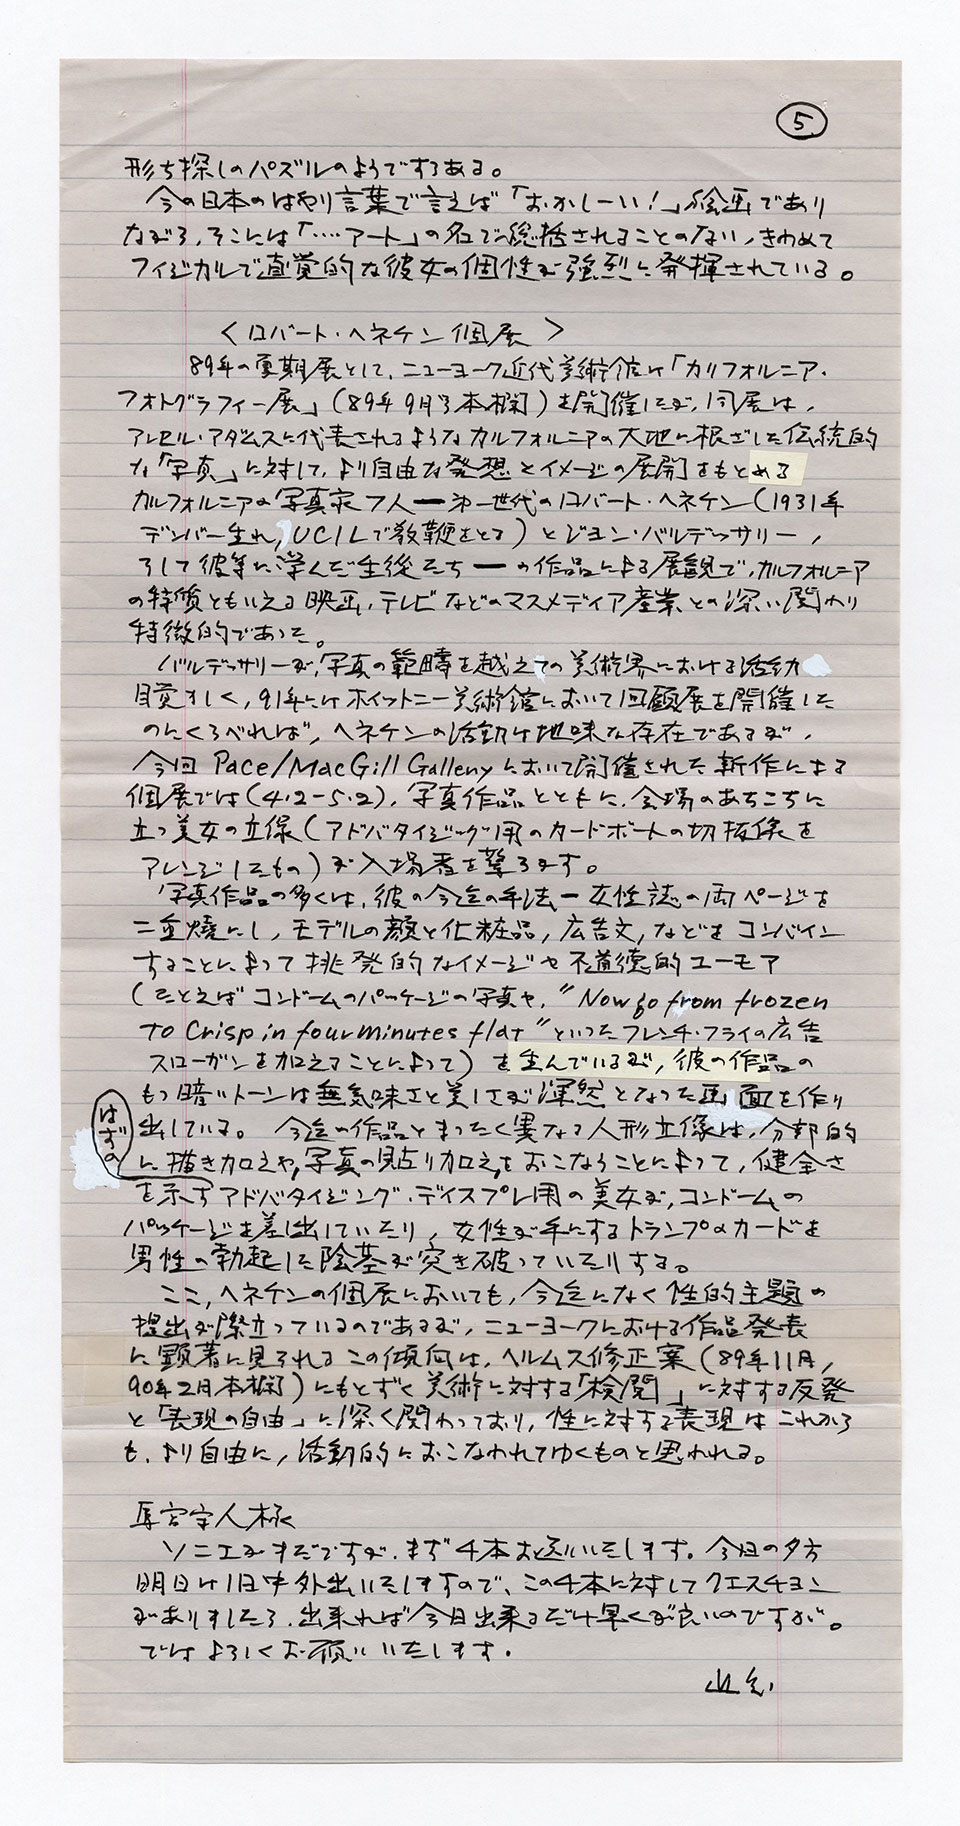 5
形ち探しのパズルのようですらある。
今の日本のはやり言葉で言えば「おかしーい!」絵画であり
ながら、そこには「‥‥アート」の名で総括されることのない、きわめて
フィジカルで直覚的な彼女の個性が強烈に発揮されている。
〈ロバート・ヘネケン個展〉
89年の夏期展として、ニューヨーク近代美術館は「カリフォルニア・
フォトグラフィー展」(89年9月号本欄)を開催したが、同展は、
アンセル・アダムスに代表されるようなカルフォルニアの大地に根ざした伝統的
な「写真」に対して、より自由な発想とイメージの展開をもとめる
カルフォルニアの写真家7人ー第一世代のロバート・ヘネケン(1931年
デンバー生れ,UCLAで教鞭をとる)とジョン・バルデッサリー,
そして彼等に学んだ生後たちーの作品による展観で、カルフォルニア
の特質ともいえる映画、テレビなどのマスメディア産業との深い関わり
特徴的であった。
バルデッサリーが,写真の範疇を越えての美術界における活動
目覚しく,91年にはホイットニー美術館において回顧展を開催した
のにくらべれば,ヘネケンの活動は地味な存在であるが、
今回Pace/MacGill Galleryにおいて開催された新作による
個展では(4.2-5.2)、写真作品とともに、会場のあちこちに
立つ美女の立像(アドバタイジング用のカードボートの切抜像を
アレンジしたもの)が入場者を撃ろます。
写真作品の多くは、彼の今迄の手法ー女性誌の両ページを
二重焼にし,モデルの顔と化粧品,広告文,などをコンバイン
することによって挑発的なイメージや不道徳的ユーモア
(たとえばコンドームのパッケージの写真や、"Now go from frozen
to Crisp in four minutes flat"といったフレンチ・フライの広告
スローガンを加えることによって)を生んでいるが,彼の作品の
もつ暗いトーンは無気味さと美しさが渾然となった画面を作り
出している。今迄の作品とまったく異なる人形立像は、分部的
に描き加えや,写真の貼り加えをおこなうことによって,健全さ
はずの
を示すアドバタイジング・ディスプレ用の美女が,コンドームの
パッケージを差し出していたり,女性が手にするトランプのカードを
男性の勃起した陰茎が突き破っていたりする。
ここ,ヘネケンの個展においても,今迄になく性的主題の
提出が際立っているのであるが,ニューヨークにおける作品発表
に顕著に見られるこの傾向は,ヘルムス修正案(89年11月,
90年2月本欄)にもとずく美術に対する「検閲」に対する反発
と「表現の自由」に深く関わっており,性に対する表現はこれから
も、より自由に,活動的におこなわれてゆくものと思われる。
様
ソニエがまだですが、まず4本お送りいたします。今日の夕方
明日は1日中外出いたしますので、この4本に対してクエスチョン
がありましたら、出来れば今日出来るだけ早くが良いのですが。
ではよろしくお願いいたします。